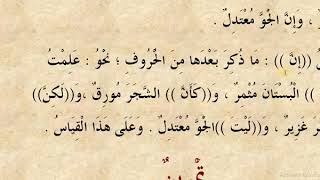 ، وَإِنَّ الْجَوَّ مُعْتَدِلٌ .
(( إِنَّ )) : مَا ذُكِرَ بَعْدَهَا مِنَ الْحُرُوفِ ؛ نَحْوُ : عَلِمْتُ
)) الْبُسْتَانَ مُثْمِرٌ ، وَ((كَأَنَّ )) الشَّجَرَ مُورِقٌ ،وَ((لَكِنَّ))
غَزِيرٌ ، وَ((لَيْتَ ))الْجَوَّ مُعْتَدِلٌ . وَعَلَى هَذَا الْقِيَاسُ .